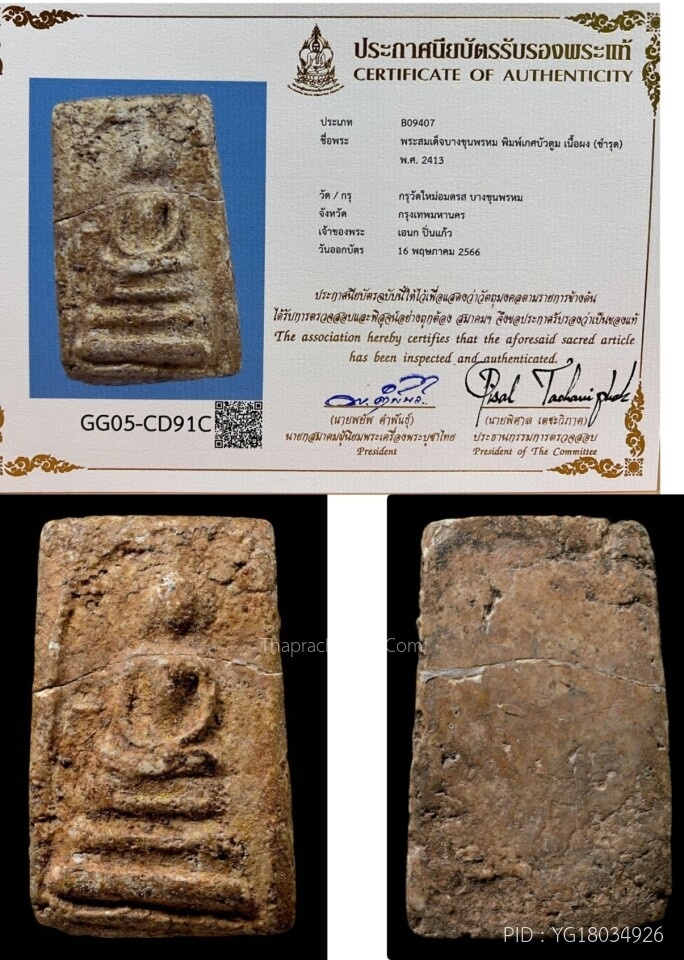 ประกาศนียบัตรรับรองพระแท้
CERTIFICATE OF AUTHENTICITY
ประเภท B09407
ชื่อพระ พระสมเด็จบางขุนพรหม พิมพ์เกศบัวตูม เนื้อผง (ชำรุด)
พ.ศ. 2413
วัด / กรุ กรุวัดใหม่อมตรส บางขุนพรหม
จังหวัด กรุงเทพมหานคร
เจ้าของพระ เอนก ปิ่นแก้ว
วันออกบัตร 16 พฤษภาคม 2566
ประกาศนียบัตรฉบับนี้ให้ไว้เพื่อแสดงว่าวัตถุมงคลตามรายการข้างต้น
ได้รับการตรวจสอบและพิสูจน์อย่างถูกต้อง สมาคมฯ จึงขอประกาศรับรองว่าเป็นของแท้
The association hereby certifies that the aforesaid sacred article
has been inspected and authenticated.
GG05-CD91C
(นายพยัพ คำพันธุ์) (นายพิศาล เตชะวิภาค)
นายกสมาคมผู้นิยมพระเครื่องพระบูชาไทย ประธานกรรมการตรวจสอบ
President President of The Committee
PID : YG18034926